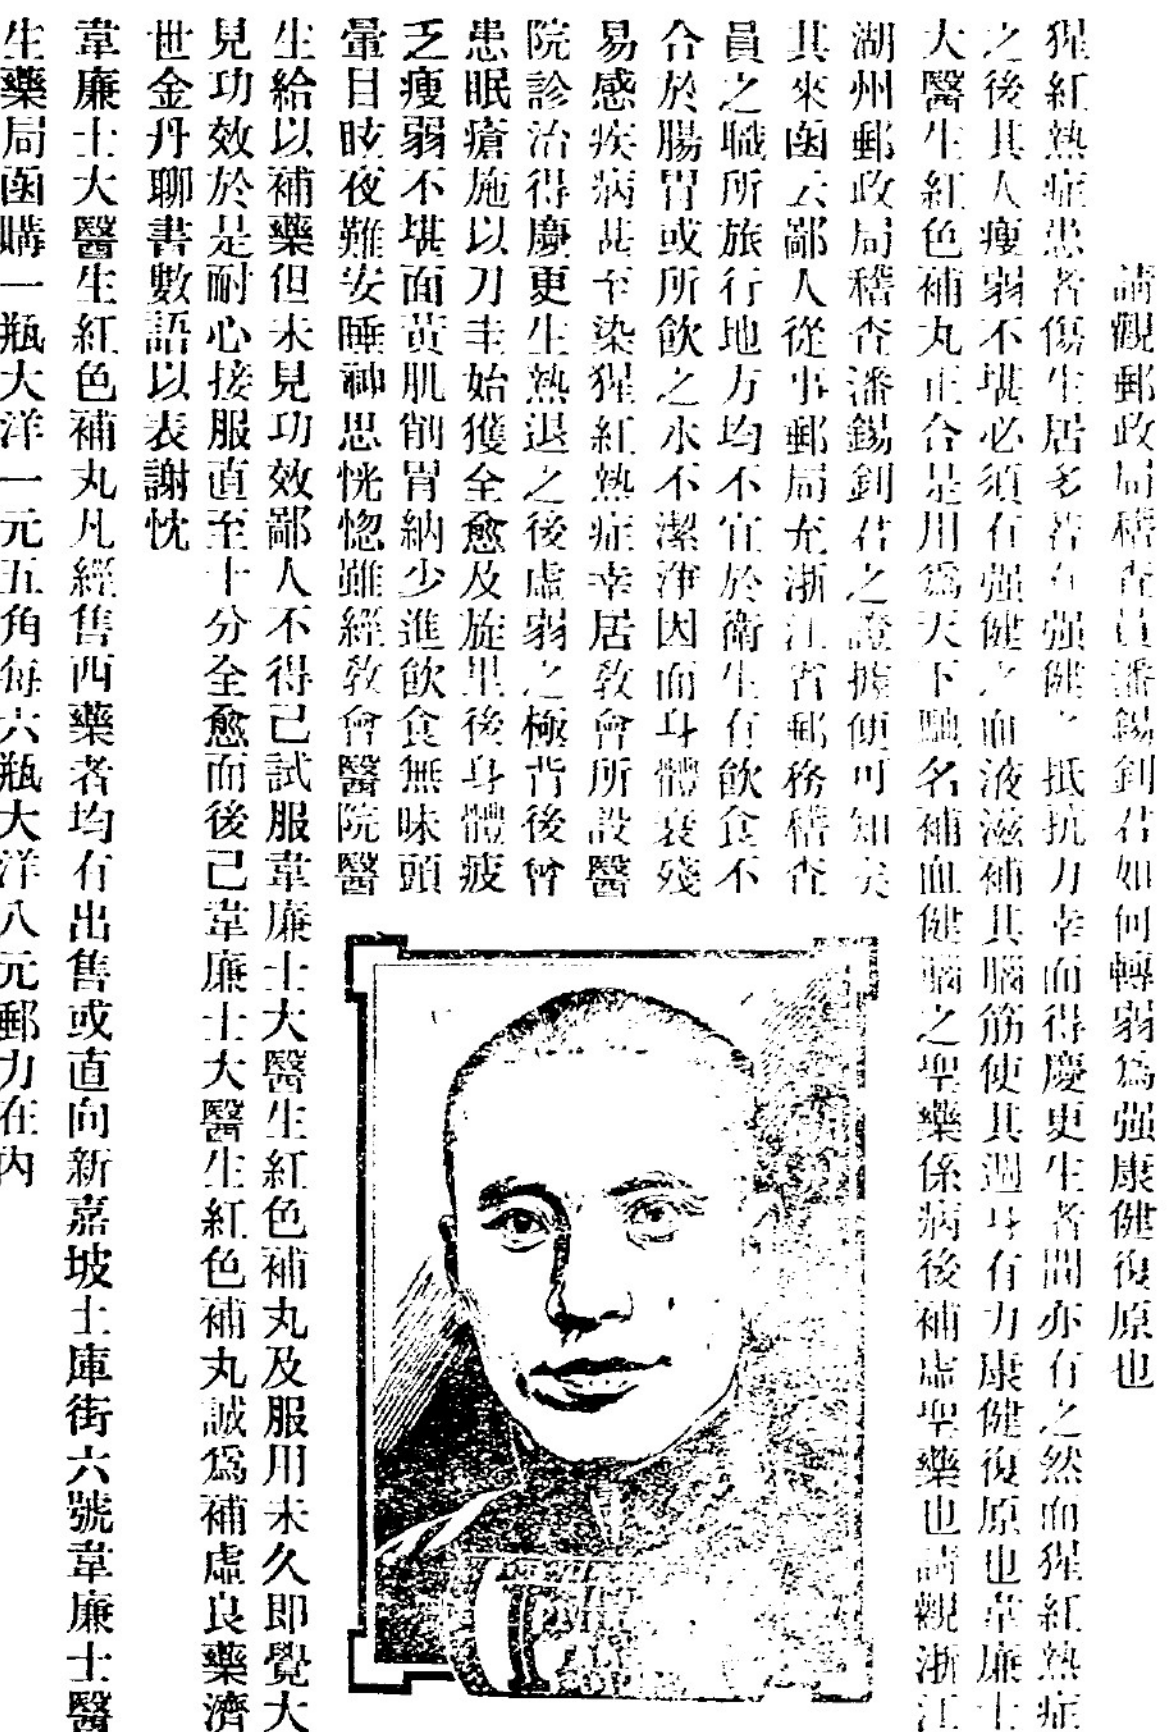 請觀郵政局稽查員潘錫釗君如何轉弱爲强康健復原也
猩紅熱症患者傷生居多若有强健之抵抗力幸而得慶更生者間亦有之然而猩紅熱症
之後其人瘦弱不堪必須有强健之血液滋補其腦筋使其週身有力康健復原也韋廉士
大醫生紅色補丸正合是用爲天下馳名補血健腦之聖藥係病後補虛聖藥也請觀浙江
湖州郵政局稽查潘錫釗君之證據便可知矣
其來函云鄙人從事郵局充浙江省郵務稽查
員之職所旅行地方均不宜於衛生有飲食不
合於腸胃或所飲之水不潔淨因而身體衰殘
易感疾病甚至染猩紅熱症幸居敎會所設醫
院診治得慶更生熱退之後虛弱之極背後曾
患眠瘡施以刀圭始獲全愈及旋里後身體疲
乏瘦弱不堪面黃肌削胃納少進飲食無味頭
暈目眩夜難安睡神思恍惚雖經敎會醫院醫
生給以補藥但未見功效鄙人不得已試服韋廉士大醫生紅色補丸及服用未久即覺大
見功效於是耐心接服直至十分全愈而後已韋廉士大醫生紅色補丸誠爲補虛良藥濟
世金丹聊書數語以表謝忱
韋廉士大醫生紅色補丸凡經售西藥者均有出售或直向新嘉坡土庫街六號韋廉士醫
生藥局函購一瓶大洋一元五角每六瓶大洋八元郵力在內